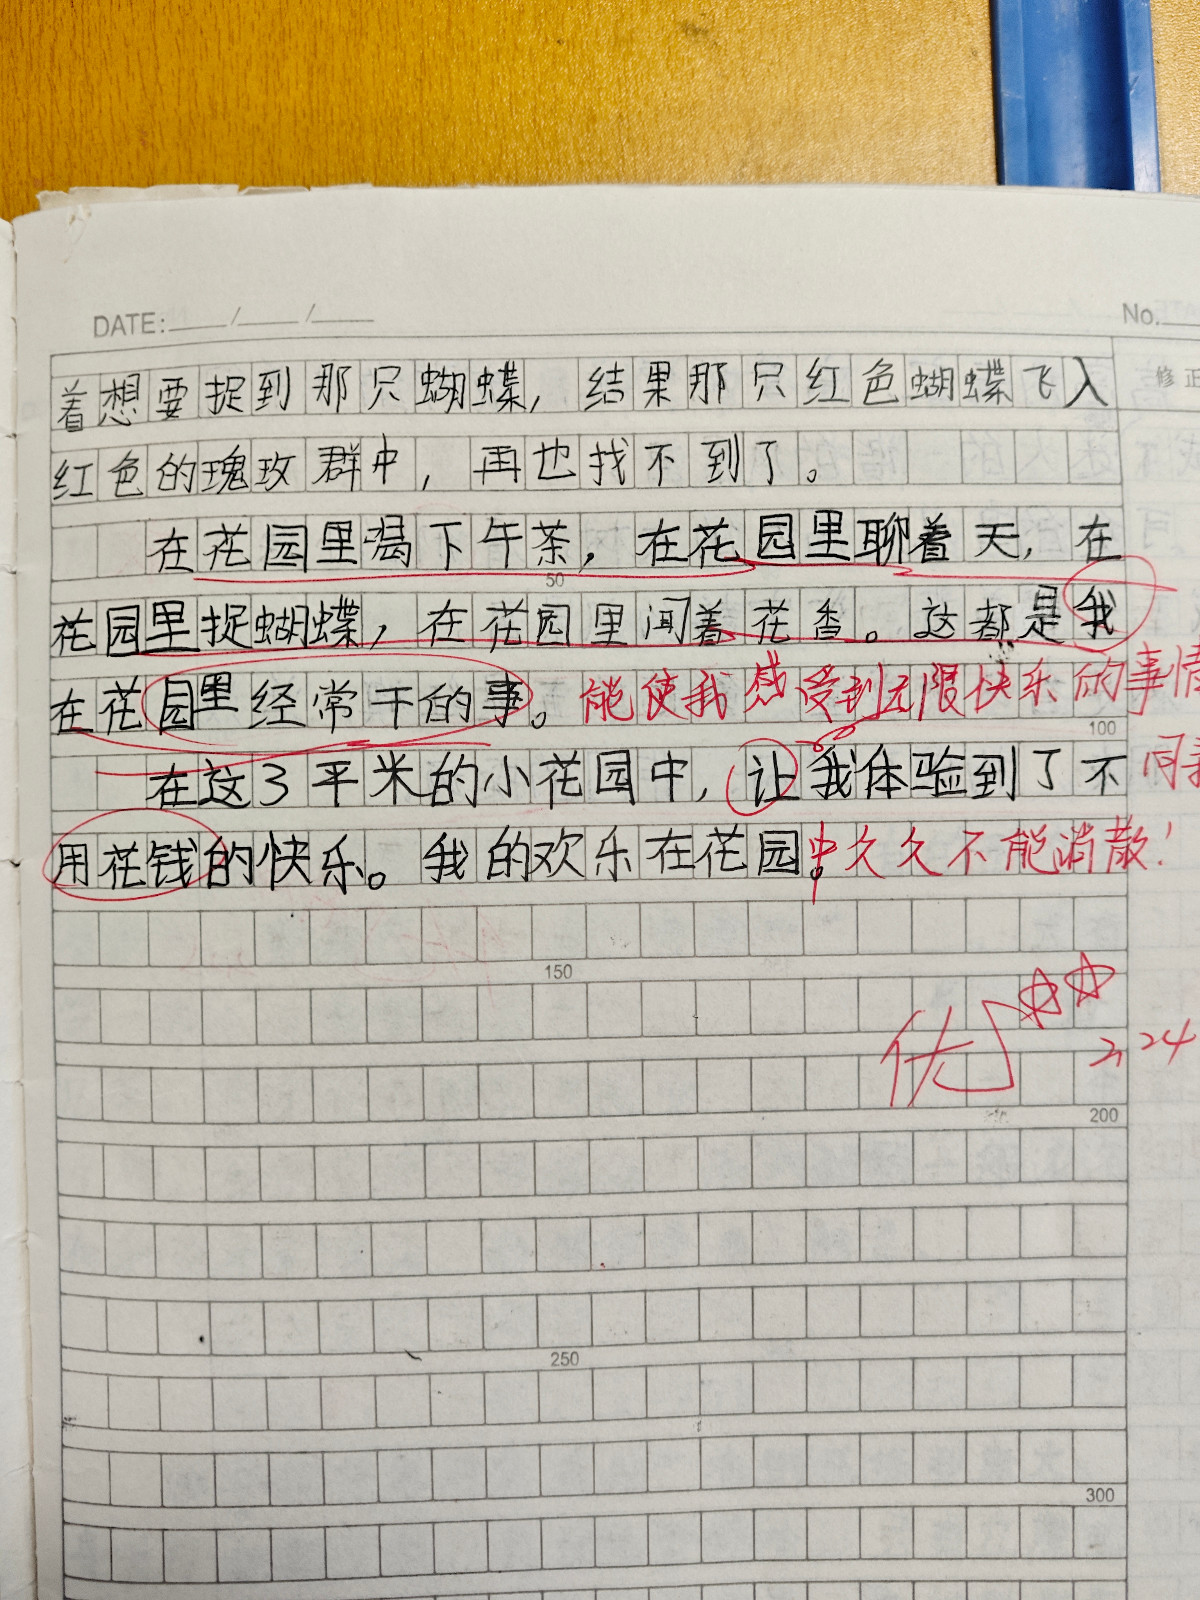 DATE: ___/___/___
No.
着想要捉到那只蝴蝶，结果那只红色蝴蝶飞入
修正
红色的瑰玫群中，再也找不到了。
在花园里喝下午茶，在花园里聊着天，在
50
花园里捉蝴蝶，在花园里闻着花香。这都是我
在花园里经常干的事。能使我感受到无限快乐的事情
100
在这3平米的小花园中，让我体验到了不
用花钱的快乐。我的欢乐在花园。中久久不能消散！
150
优
2.24
200
250
300